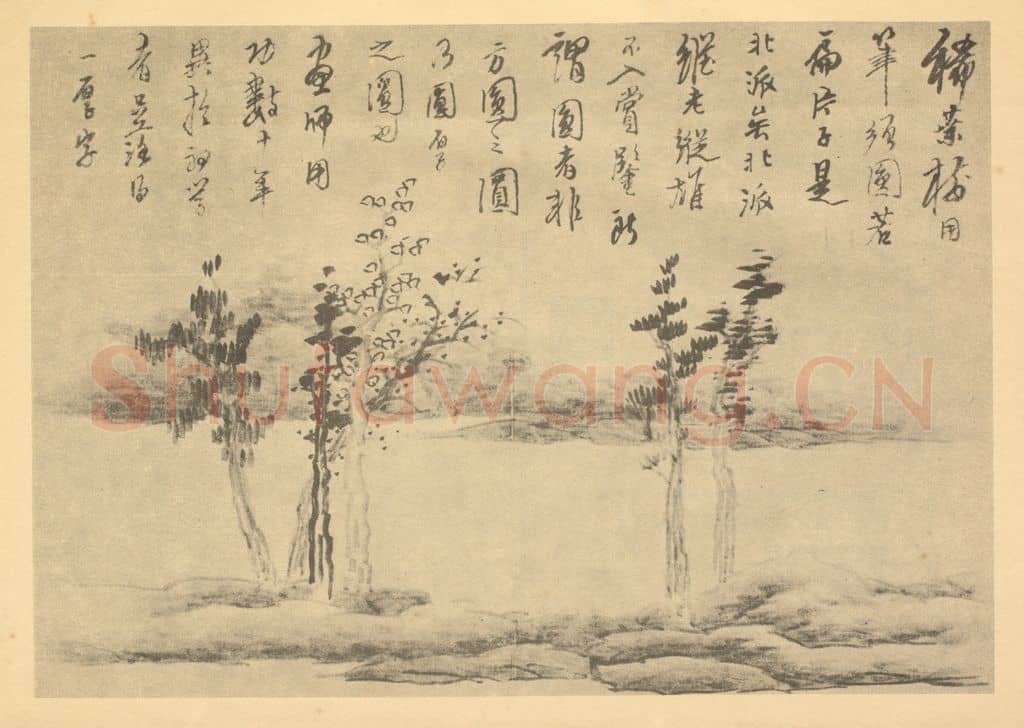 稀葉樹用
筆須圓若
扁片子是
北派矣北派
縱老縱雄
不入賞鑒所
謂圓者非
方圓之圓
乃圓厚
之圓也
畫師用
功數十年
異於初學
者落得
一厚字
Shufawang.CN